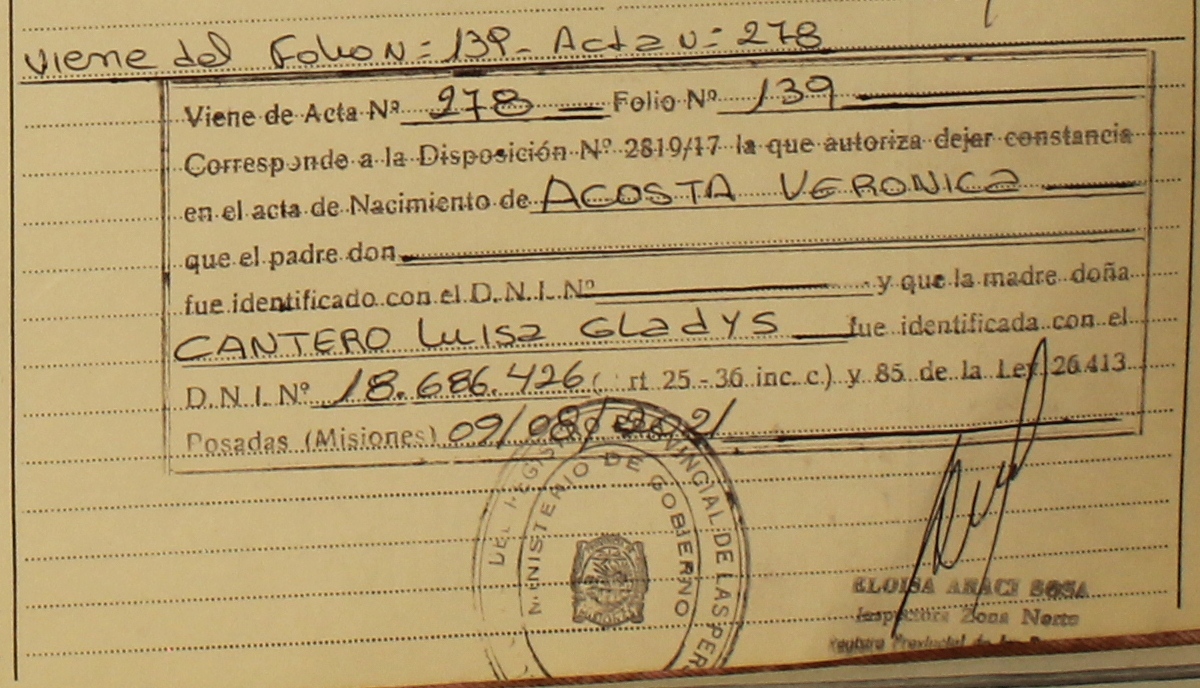 Viene del Folio N= 139- Acta N= 278
Viene de Acta Nº 278 Folio Nº 139
Corresponde a la Disposición Nº 2819/17 la que autoriza dejar constancia
en el acta de Nacimiento de ACOSTA VERONICa
que el padre don
fue identificado con el D.N.I. Nº y que la madre doña
CANTERO LUISa GLadYS fue identificada con el
D.N.I. Nº 18.686.426 ( rt 25-36 inc. c.) y 85 de la Ley 26.413
Posadas (Misiones) 09/08/2021
DEL REGISTRO PROVINCIAL DE LAS PERS
MINISTERIO DE GOBIERNO
ELOISA ARACI SOSA
Inspectora Zona Norte
Registro Provincial de las